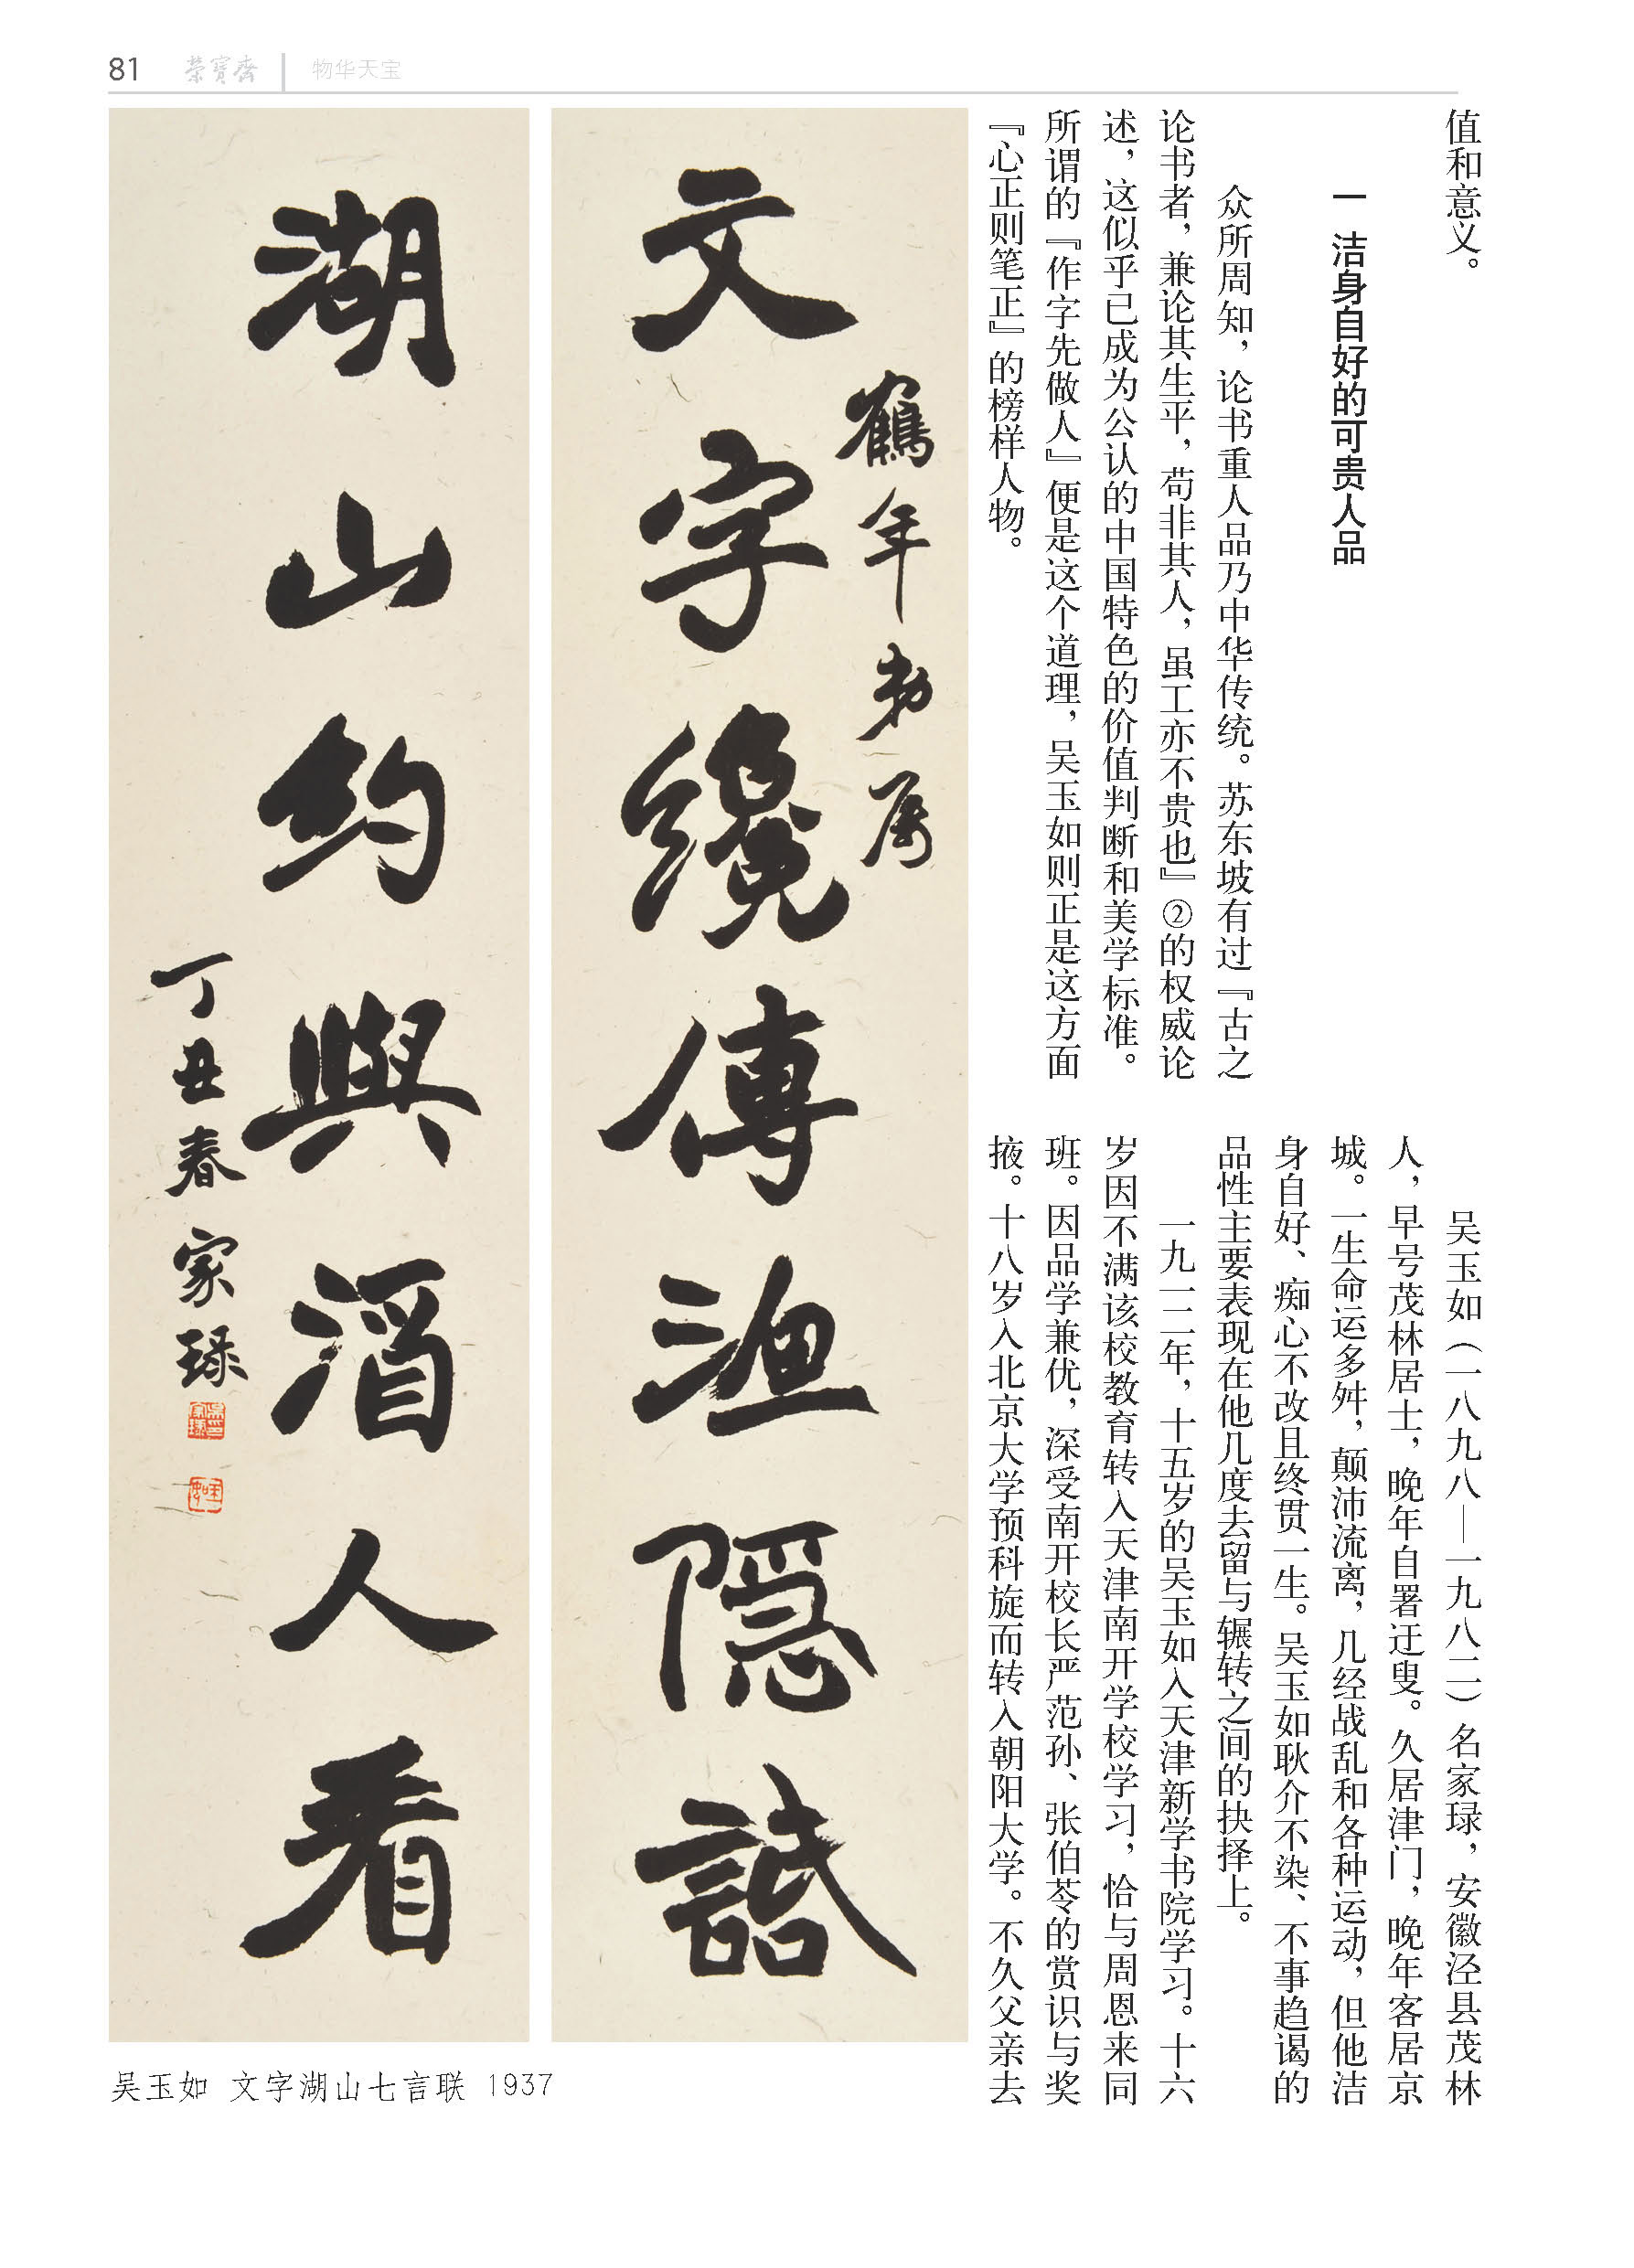 81 荣宝斋 物华天宝
值和意义。
一 洁身自好的可贵人品
众所周知，论书重人品乃中华传统。苏东坡有过『古之
论书者，兼论其生平，苟非其人，虽工亦不贵也』②的权威论
述，这似乎已成为公认的中国特色的价值判断和美学标准。
所谓的『作字先做人』便是这个道理，吴玉如则正是这方面
『心正则笔正』的榜样人物。
吴玉如（一八九八—一九八二）名家琭，安徽泾县茂林
人，早号茂林居士，晚年自署迂叟。久居津门，晚年客居京
城。一生命运多舛，颠沛流离，几经战乱和各种运动，但他洁
身自好、痴心不改且终贯一生。吴玉如耿介不染、不事趋谒的
品性主要表现在他几度去留与辗转之间的抉择上。
一九一二年，十五岁的吴玉如入天津新学书院学习。十六
岁因不满该校教育转入天津南开学校学习，恰与周恩来同
班。因品学兼优，深受南开校长严范孙、张伯苓的赏识与奖
掖。十八岁入北京大学预科旋而转入朝阳大学。不久父亲去
鶴年勑属
文字纔傳漁隱話
湖山約與酒人看
丁丑春 家琭
吴玉如 文字湖山七言联 1937